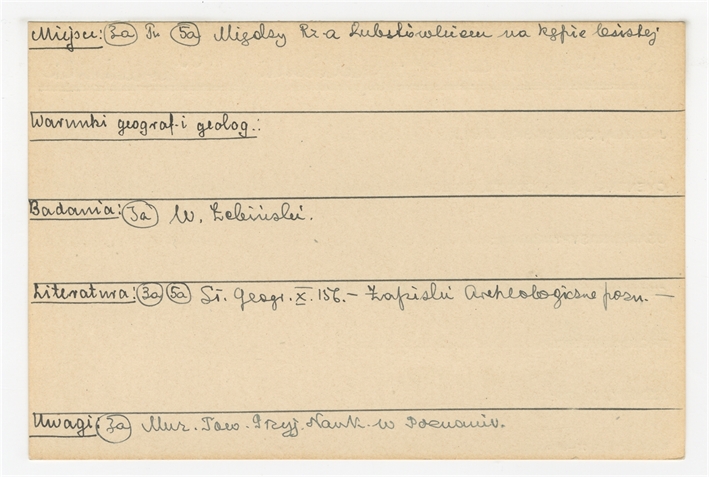 Miejsce: 3a Tu 5a Między Rz-a Lubstówkiem na kępie lesistej
Warunki geograf. i geolog.:
Badania: 3a W. Żebiński.
Literatura: 3a 5a Sł. Geogr. X. 156. – Zapiski Archeologiczne pozn. –
Uwagi: 3a Muz. Tow. Przyj. Nauk. w Poznaniu.